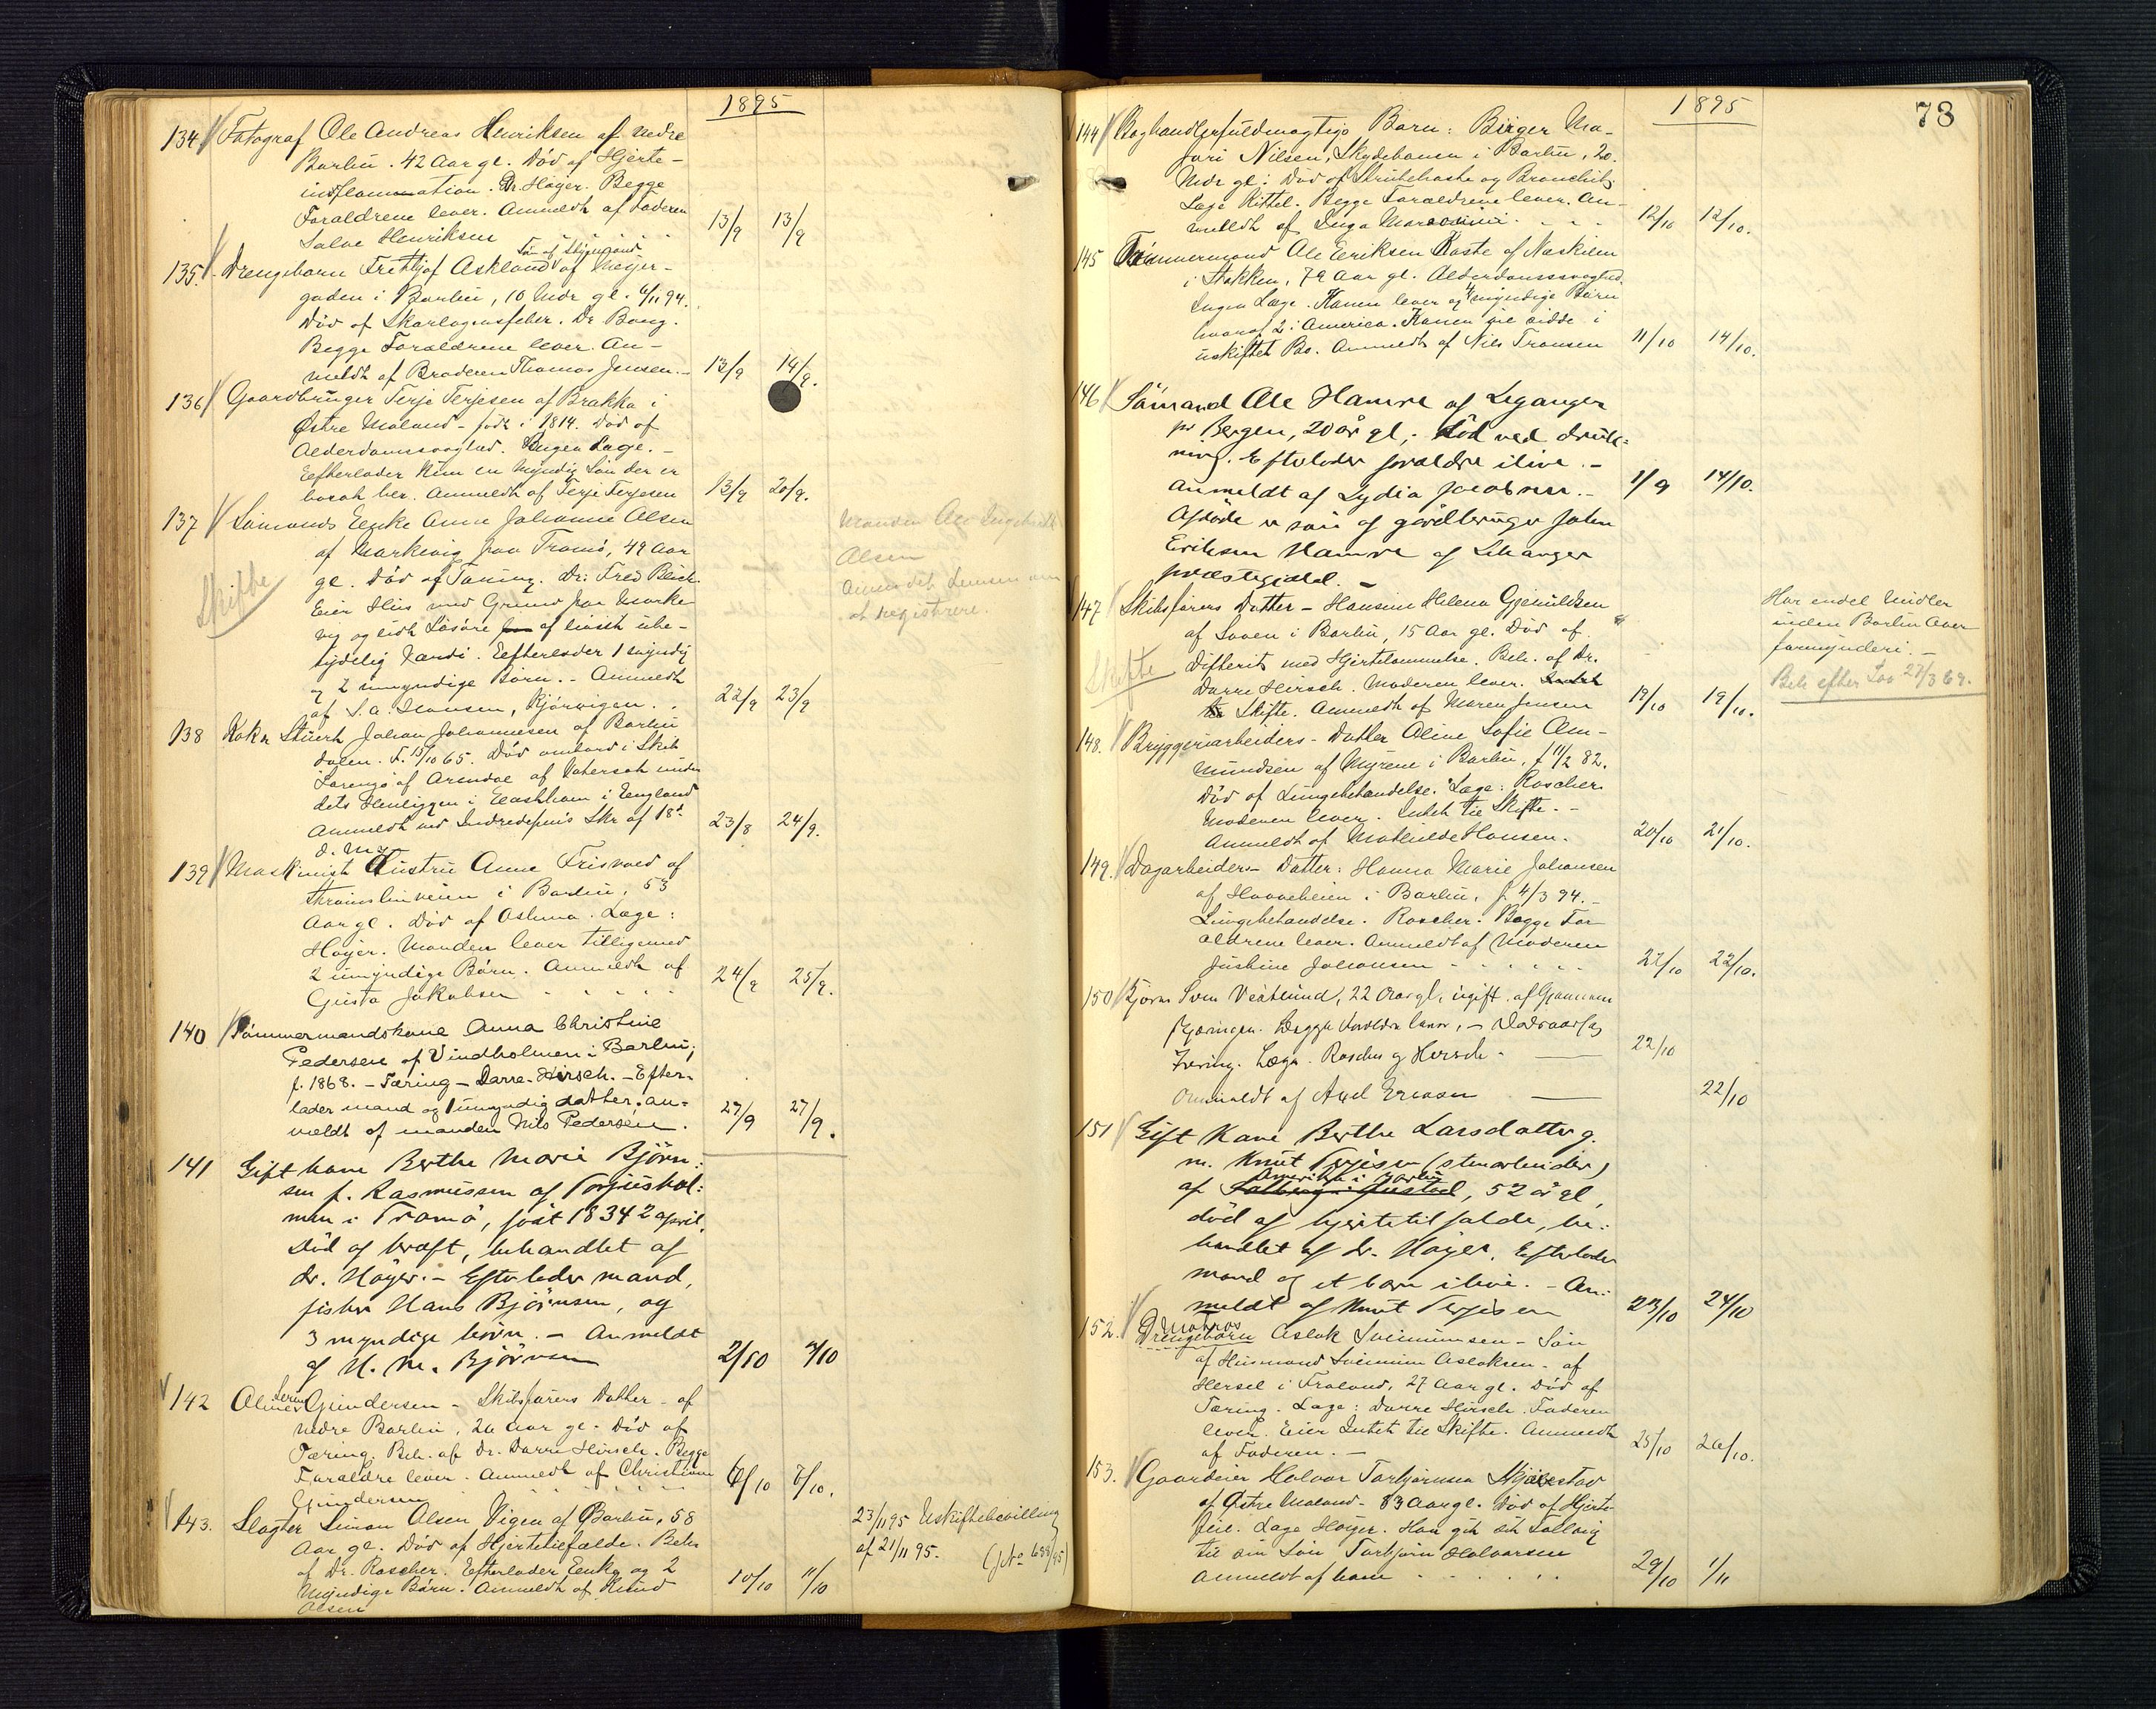 1895
134 Fotograf Ole Andreas Henriksen af nedre
Barbu. 42 Aar gl. Død af Hjerte-
inflammation. Dr Høyer. Begge
Forældrene lever. Anmeldt af Faderen
Salve Henriksen 13/9 13/9
135. Drengebarn Frithjof Askland af Meyer-
gaden i Barbu, 10 Mdr gl. 6/11 94.
Død af Skarlagensfeber. Dr Bong.
Begge Forældrene lever. An-
meldt af Broderen Thomas Jensen. 13/9 14/9.
136 Gaardbruger Terje Terjesen af Brakka i
Østre Moland - født i 1814. Død af
Alderdomssvaghed. Ingen Læge. -
Efterlader kun en myndig Søn der er
bosat her. Anmeldt af Terje Terjesen 13/9 20/9.
137 Sømands Enke Anne Johanne Olsen
af Markevig paa Tromø, 49 Aar
gl. Død af Tæring. Dr: Fred Blich
Eier Hus med Grund paa Marke
vig og lidt Løsøre af höist ube-
tydelig Værdi. Efterlader 1 myndig
og 2 umyndige Börn. - Anmeldt
af S. A. Hansen, Kjørvigen. 22/9 23/9
Skifte
Manden
Olsen
at registrere.
138 Kok & Stuert Johan Johannesen af Barbu
dalen. F. 15/10 65. Død ombord i Skib
af Arendal af
dets Henliggen i Eastham i England
Anmeldt ved Skr af 18d
d. M. 23/8 24/9.
139 Maskinist Hustru Anne Frisvold af
i Barbu, 53
Aar gl. Død af Asthma. Læge:
Høyer. Manden lever tilligemed
2 umyndige Börn. Anmeldt af
Gusta Jakobsen 24/9 25/9.
140 Tömmermandskone Anna Christine
Pedersen af Vindholmen i Barbu,
f. 1868. - Tæring - Darre-Hirsch. - Efter-
lader mand og 1 umyndig datter. an-
meldt af manden Nils Pedersen. 27/9 27/9.
141 Gift kone Berthe Marie Björn-
sen f. Rasmussen af Torjushol-
men i Tromö, födt 1834 2 april.
Död af kræft, behandlet af
dr. Höyer. - Efterlader mand,
fisker Hans Björnsen, og
3 myndige börn. - Anmeldt
af H. M. Björnsen 2/10 3/10
142 Oline Gundersen - Skibsførers Datter - af
nedre Barbu, 20 Aar gl. Död af
Tæring. Beh. af Dr. Darre Hirsch. Begge
Forældre lever. Anmeldt af Christiane
Gundersen 6/10 7/10.
143. Slagter Simon Olsen Vigen af Barbu, 58
Aar gl. Død af Hjertetilfælde. Beh.
af Dr. Roscher. Efterlader Enke og 2
Myndige Börn. Anmeldt af Knud
Olsen 10/10 11/10
23/11 95 Uskiftebevilling
af 21/11 95. (J No 688/95)
1895
73
144 Boghandlerfuldmægtigs Barn: Birger Ma-
juri Nilsen, Skydebanen i Barbu, 20.
Mdr gl: Död af Strubehoste og Bronchit.
Læge Kittel. Begge Forældrene lever. An-
meldt af Inga 12/10 12/10.
145 Tömmermand Ole Eriksen Raste af Naskilen
i Stokken, 79 Aar gl. Alderdomssvaghed.
Ingen Læge. Konen lever og 4 myndige Börn
hvoraf 2 i America. Konen vil sidde i
uskiftet Bo. Anmeldt af Nils Transen 11/10 14/10.
146 Sömand Ole Hamre af Leganger
pr Bergen, 20 år gl, död ved druk-
ning. Efterlader forældre ilive. -
anmeldt af Lydia Jacobsen. - 1/9 14/10.
Afdöde er sön af gårdbruger John
Eriksen Hamre af Lekanger
præstegjæld. -
147 Skibsførers Datter - Hansine Helena Gjemildsen
af Soven i Barbu, 15 Aar gl. Död af
Difterit med Hjertelammelse. Beh. af Dr.
Darre Hirsch. Moderen lever.
Skifte. Anmeldt af Maren Jensen 19/10 19/10.
Skifte
Har endel Midler
under Barbu Over
formynderi. -
Beh efter Lov 27/3 69.
148. Bryggeriarbeiders - Datter Oline Sofie Am-
mundsen af Myrene i Barbu, f 11/2 82.
Död af Lungebetændelse. Læge: Roscher
Moderen lever. Intet til Skifte. -
Anmeldt af Mathilde Hansen. 20/10 21/10.
149. Dagarbeiders Datter: Hanna Marie Johansen
af Haaveheien i Barbu, f. 4/3 94. -
Lungebetændelse. Roscher. Begge For
ældrene lever. Anmeldt af Moderen
Justine Johansen 22/10 22/10.
150 Sven Vestlund, 22 Aar gl, ugift, af
Begge Forældre lever, - Dödsaarsag
Tæring. Læge. Roscher og Hirsch - 22/10
Anmeldt af Axel Ericsen 22/10
151 Gift Kone Berthe Larsdatter g.
m. Knut Terjesen (stenarbeider)
af Amerika i Barbu, 52 år gl,
död af hjertetilfælde, be-
handlet af dr. Höyer. Efterlader
mand og et barn ilive. - An-
meldt af Knut Terjesen 23/10 24/10
152. Matros
Drengebarn Aslak Sveinumsen - Sön
af Husmand Sveinum Aslaksen - af
Hersel i Froland, 27 Aar gl. Död af
Tæring. Læge: Darre Hirsch. Faderen
lever. Eier Intet til Skifte. Anmeldt
af Faderen. - 25/10 26/10.
153. Gaardeier Halvor Torbjørnsen
af Østre Moland - 83 Aar gl. Död af Hjerte
feil. Læge Höyer. Han gik sit
til sin Søn Torbjørn Halvorsen
Anmeldt af ham 29/10 1/11